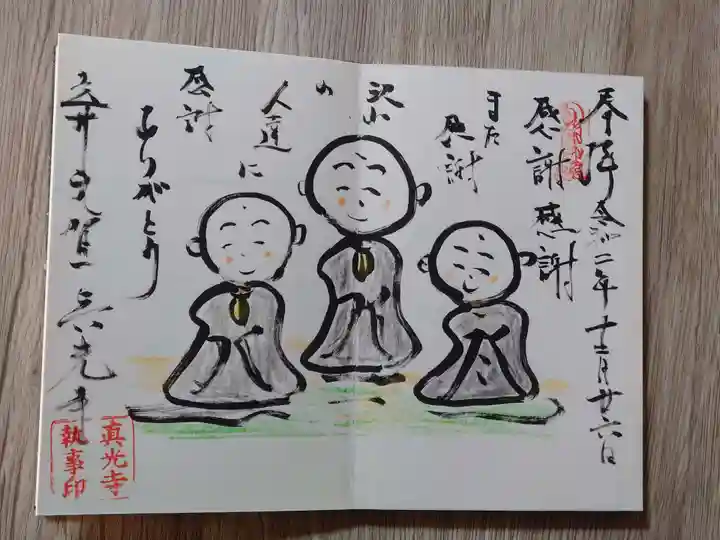 奉拝 令和二年十二月廿六日
感謝感謝
また
感謝
沢山
の
人達に
感謝
ありがとう
真光寺
真光寺
執事印